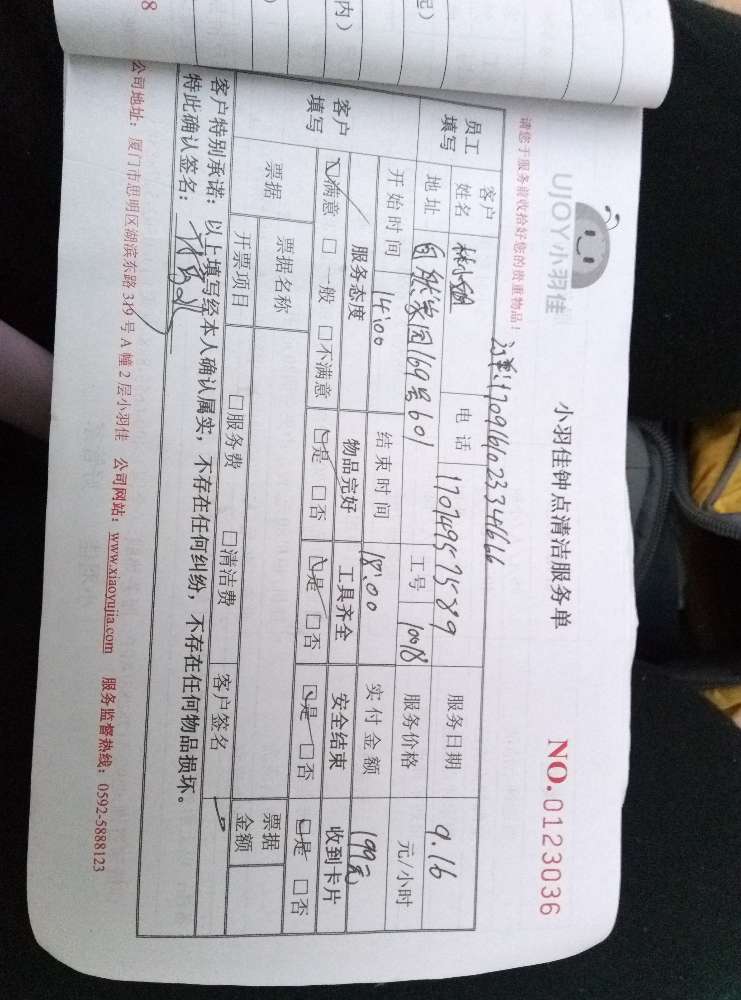 起）
内）
UJOY小羽佳
小羽佳钟点清洁服务单
NO.0123036
请您于服务前收拾好您的贵重物品！
员工填写
客户姓名
电话
17074957589
服务日期
9.16
地址
自然家园169号601
工号
10018
服务价格
元/小时
客户填写
开始时间
14:00
结束时间
18:00
实付金额
199元
服务态度
物品完好
工具齐全
安全结束
收到卡片
满意 □ 一般 □不满意
是 □ 否
是 □ 否
是 □ 否
是 □ 否
票据
票据名称
开票项目
□服务费
□清洁费
客户签名
票据金额
客户特别承诺：以上填写经本人确认属实，不存在任何纠纷，不存在任何物品损坏。
特此确认签名：
8
公司地址：厦门市思明区湖滨东路319号A幢2层小羽佳 公司网站：www.xiaoyujia.com 服务监督热线：0592-5888123